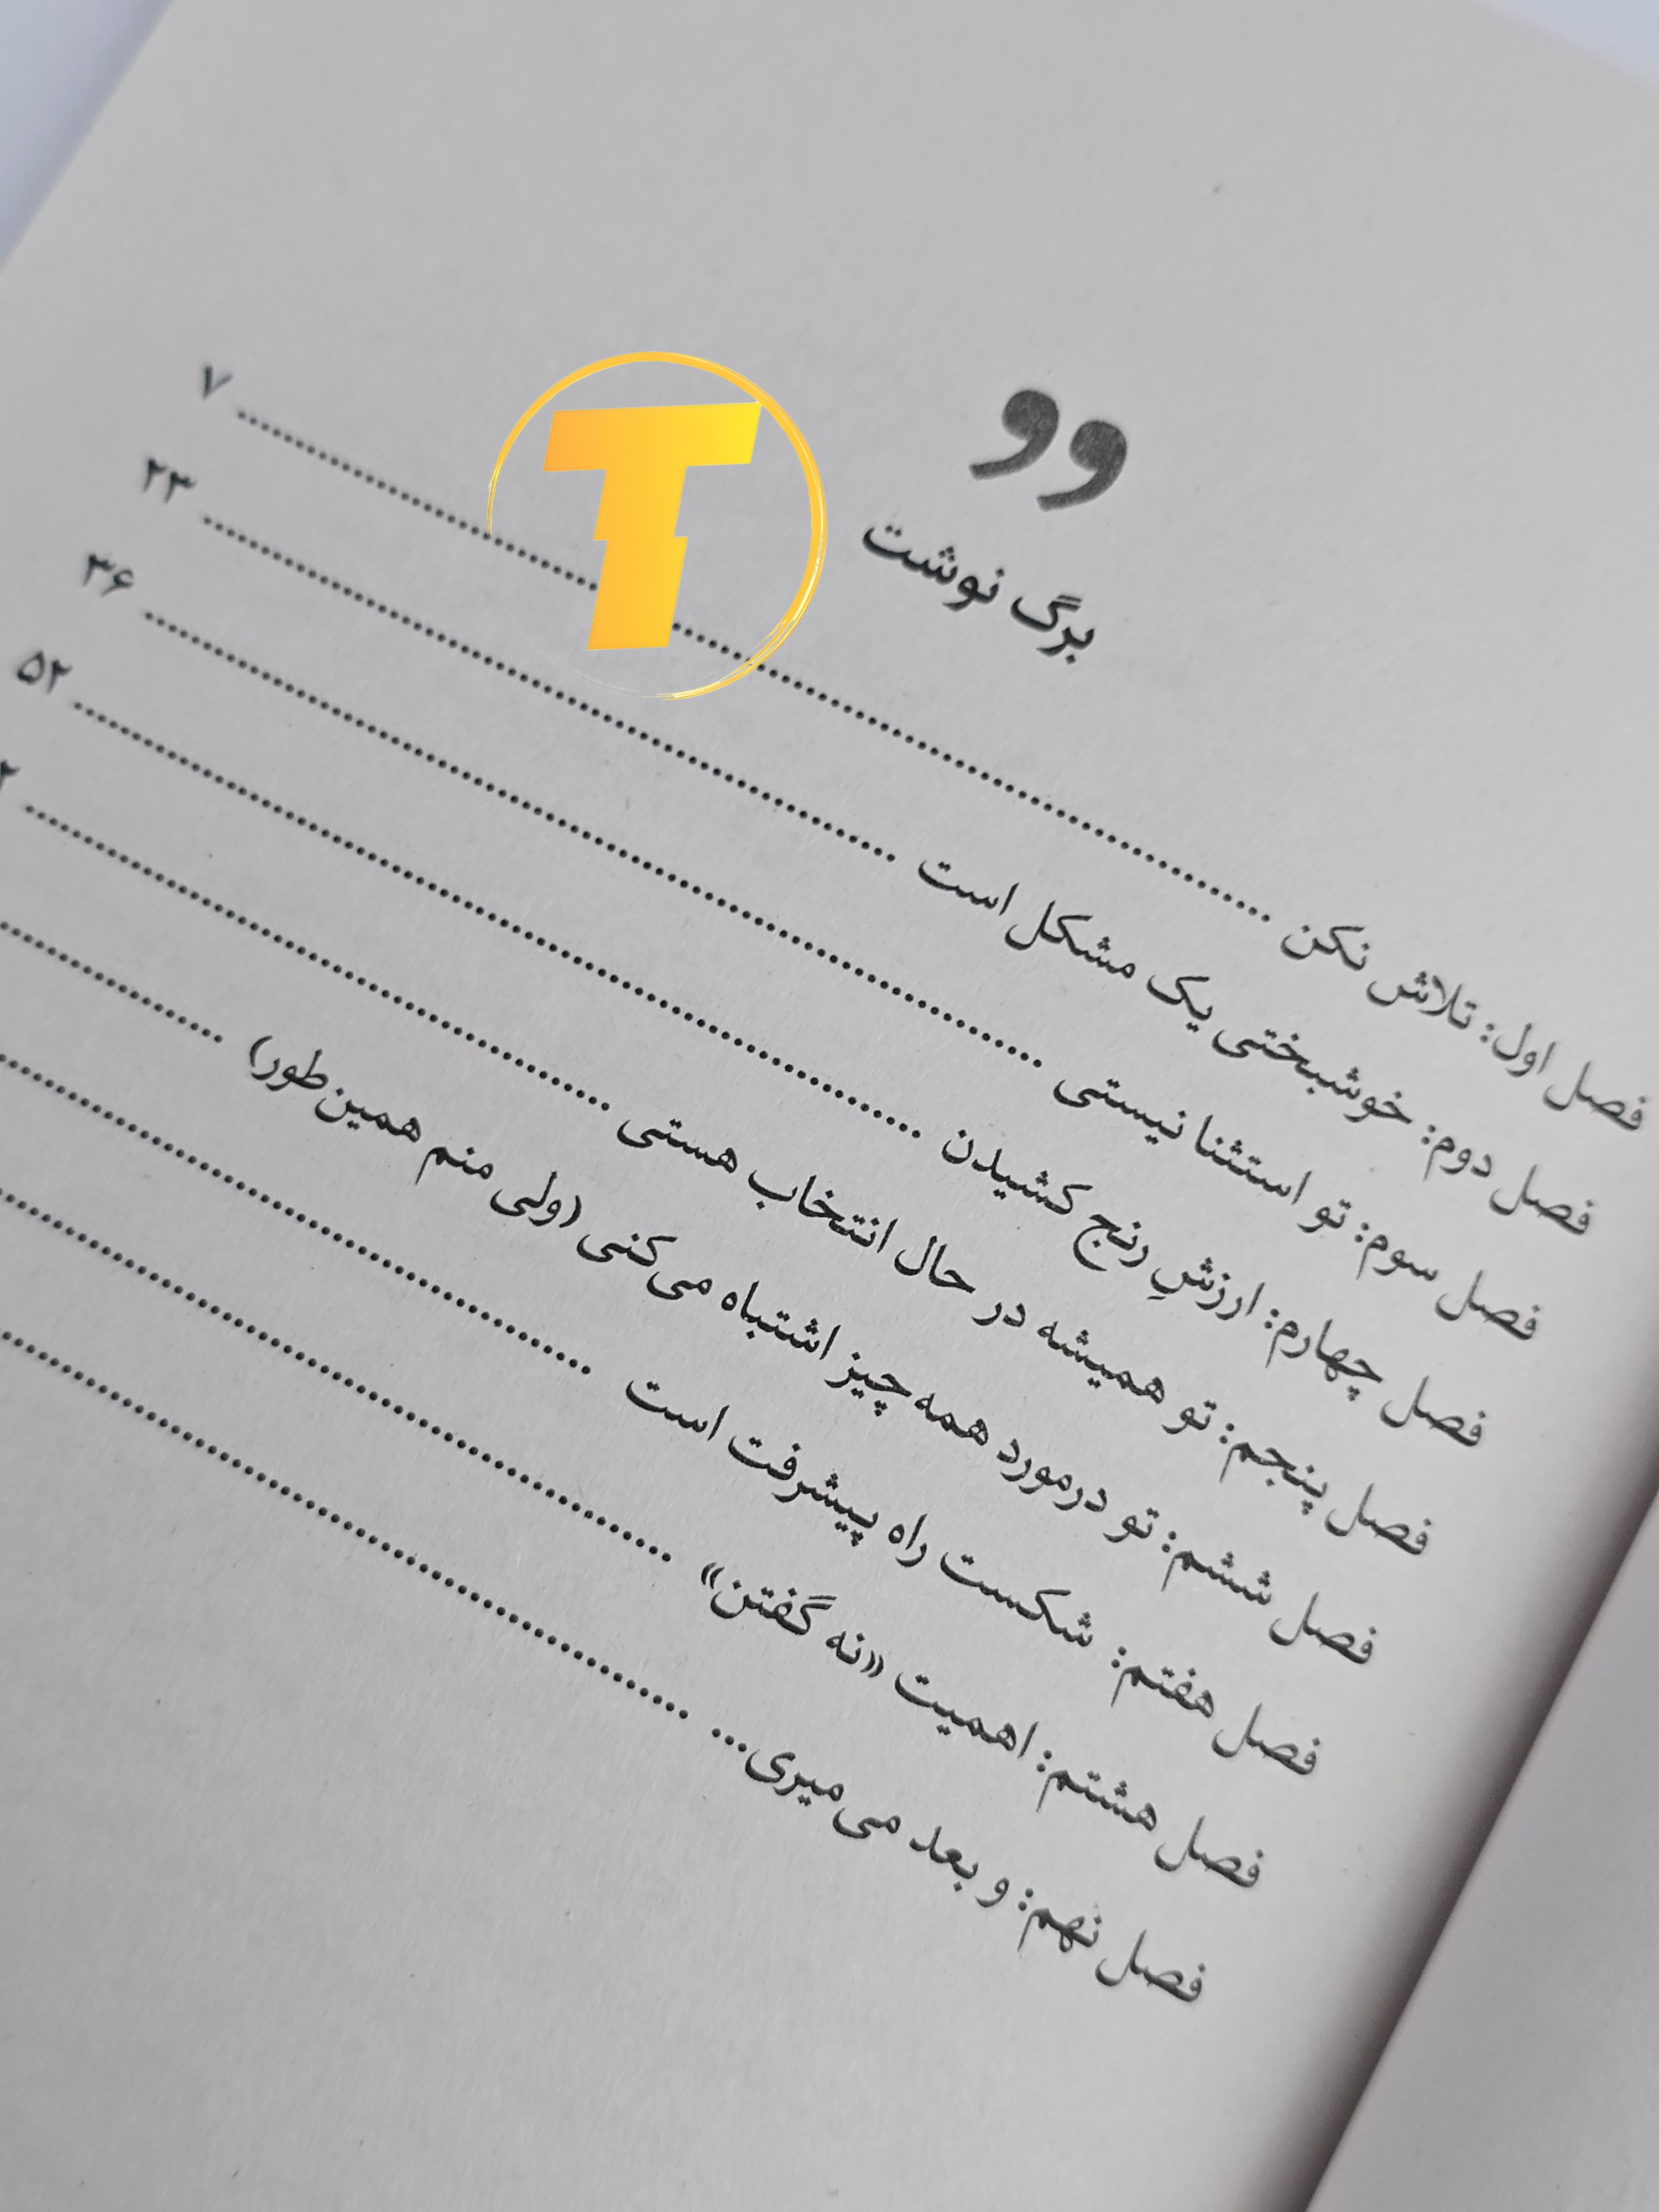 ”
برگ نوشت
فصل اول: تلاش نکن ........ ۷
فصل دوم: خوشبختی یک مشکل است ........ ۲۳
فصل سوم: تو استثنا نیستی ........ ۳۶
فصل چهارم: ارزشِ رنج کشیدن ........ ۵۲
فصل پنجم: تو همیشه در حال انتخاب هستی ........
فصل ششم: تو درمورد همه چیز اشتباه می‌کنی (ولی منم همین‌طور) ........
فصل هفتم: شکست راه پیشرفت است ........
فصل هشتم: اهمیت «نه گفتن» ........
فصل نهم: و بعد می‌میری... ........
T